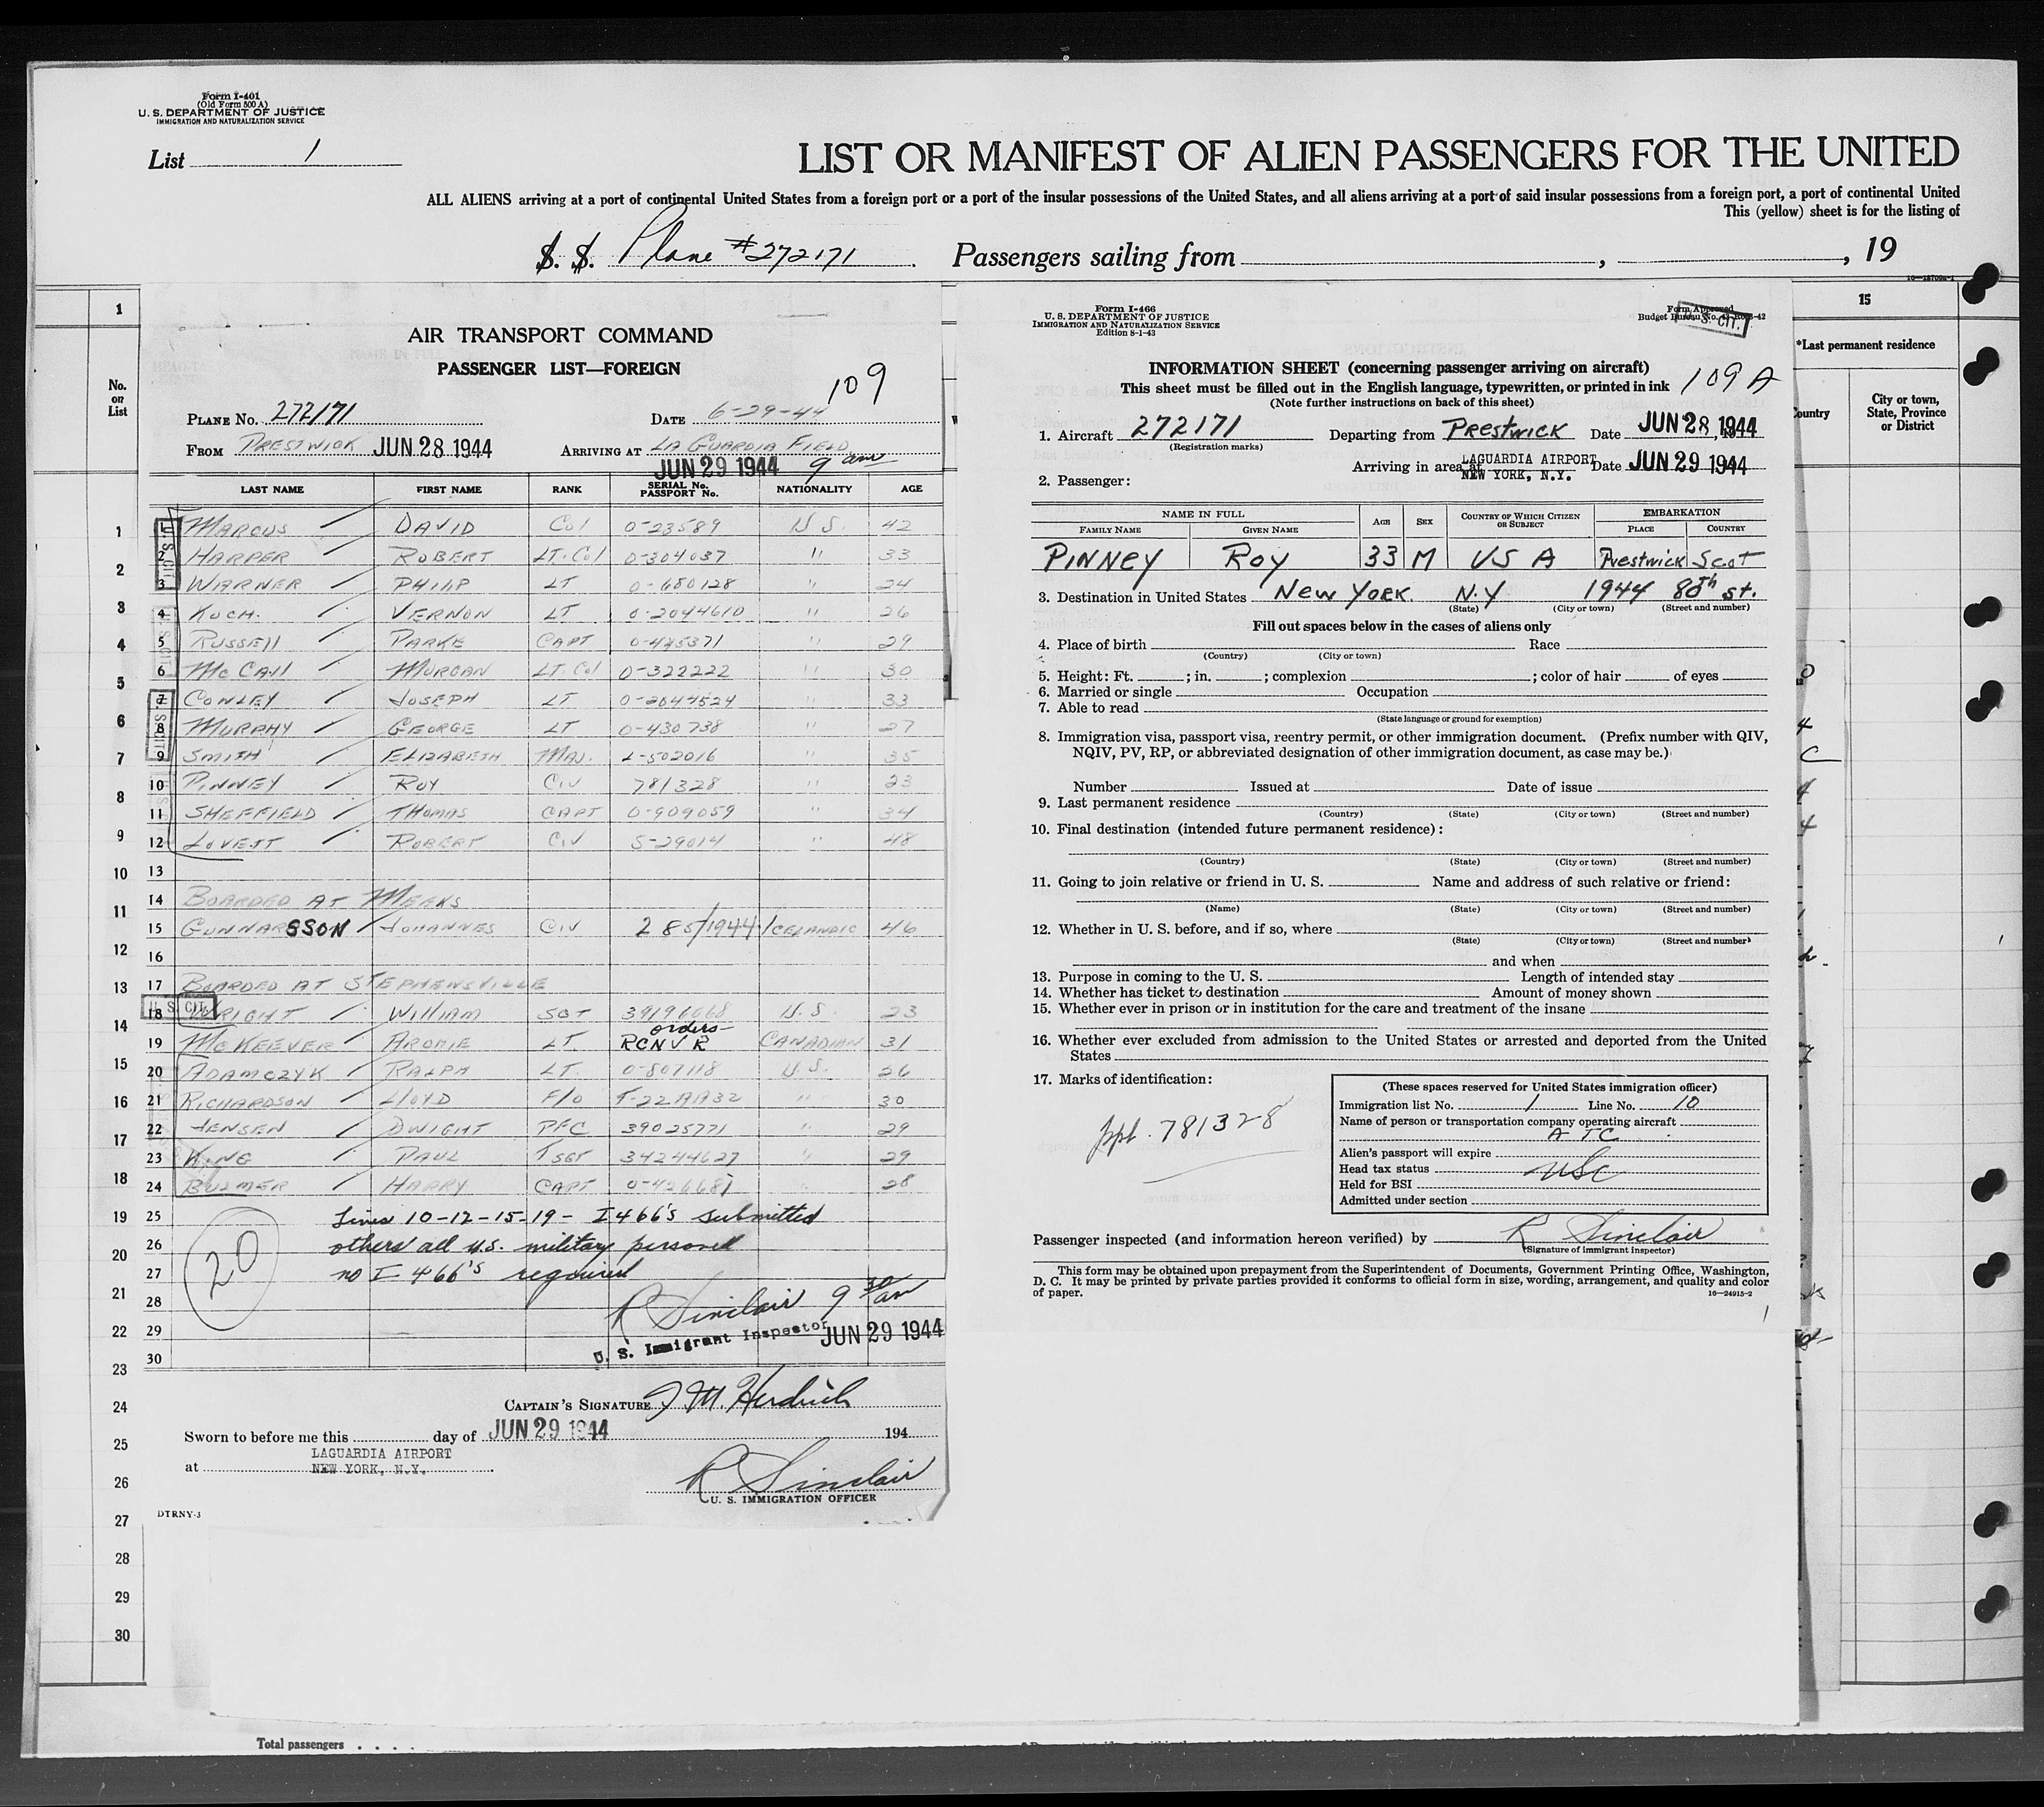 Form I-401
(Old Form 500 A)
U. S. DEPARTMENT OF JUSTICE
IMMIGRATION AND NATURALIZATION SERVICE
List 1
LIST OR MANIFEST OF ALIEN PASSENGERS FOR THE UNITED
ALL ALIENS arriving at a port of continental United States from a foreign port or a port of the insular possessions of the United States, and all aliens arriving at a port of said insular possessions from a foreign port, a port of continental United
This (yellow) sheet is for the listing of
S. S. Plane #272171 Passengers sailing from , , 19
1
No. on List
AIR TRANSPORT COMMAND
PASSENGER LIST—FOREIGN
109
PLANE No. 272171 DATE 6-29-44
FROM PRESTWICK JUN 28 1944 ARRIVING AT LA GUARDIA FIELD
JUN 29 1944 9 am
LAST NAME FIRST NAME RANK SERIAL No. PASSPORT No. NATIONALITY AGE
1 MARCUS DAVID Col 0-23589 U.S. 42
2 HARPER ROBERT LT. Col 0-304037 " 33
3 WARNER PHILIP LT 0-680128 " 24
4 KOCH. VERNON LT 0-2044610 " 26
5 RUSSELL PARKE CAPT 0-445371 " 29
6 McCAll MORGAN LT. Col 0-322222 " 30
7 CONLEY JOSEPH LT 0-2044524 " 33
8 MURPHY GEORGE LT 0-430738 " 27
9 SMITH ELIZABETH MAJ. L-502016 " 35
10 PINNEY ROY CIV 781328 " 23
11 SHEFFIELD THOMAS CAPT 0-909059 " 34
12 LOVETT ROBERT CIV S-29014 " 48
13
14 BOARDED AT MEEKS
15 GUNNARSSON JOHANNES CIV 285/1944 ICELANDIC 46
16
17 BOARDED AT STEPHENSVILLE
U. S. CIT.
18 WRIGHT WILLIAM SGT 39196068 U.S. 23
orders
19 McKEEVER ARCHIE LT. RCNVR CANADIAN 31
20 ADAMCZYK RALPH LT. 0-807118 U.S. 26
21 RICHARDSON LLOYD F/O 30
22 JENSEN DWIGHT PFC 39025771 " 29
23 KING PAUL T SGT 34244627 " 29
24 BULMER HARRY CAPT 0-426681 " 28
25 Lines 10-12-15-19- I466's submitted
26 others all U.S. military personel
27 no I 466's required
20
28 R Sinclair 9 30 am
29 U. S. Immigrant Inspector JUN 29 1944
30
CAPTAIN'S SIGNATURE
Sworn to before me this day of JUN 29 1944 194
at LAGUARDIA AIRPORT
NEW YORK, N.Y.
R Sinclair
U. S. IMMIGRATION OFFICER
DTRNY-3
1
2
3
4
5
6
7
8
9
10
11
12
13
14
15
16
17
18
19
20
21
22
23
24
25
26
27
28
29
30
Total passengers . . . .
Form I-466
U. S. DEPARTMENT OF JUSTICE
IMMIGRATION AND NATURALIZATION SERVICE
Edition 8-1-43
Form Approved
U. S. CIT.
INFORMATION SHEET (concerning passenger arriving on aircraft)
This sheet must be filled out in the English language, typewritten, or printed in ink
(Note further instructions on back of this sheet)
109 A
1. Aircraft 272171 Departing from PRESTWICK Date JUN 28 1944
(Registration marks)
Arriving in area at LAGUARDIA AIRPORT NEW YORK, N.Y. Date JUN 29 1944
2. Passenger:
NAME IN FULL AGE SEX COUNTRY OF WHICH CITIZEN OR SUBJECT EMBARKATION
FAMILY NAME GIVEN NAME PLACE COUNTRY
PINNEY ROY 33 M USA Prestwick Scot
3. Destination in United States New York N.Y 1944 80th st.
(State) (City or town) (Street and number)
Fill out spaces below in the cases of aliens only
4. Place of birth Race
(Country) (City or town)
5. Height: Ft. ; in. ; complexion ; color of hair of eyes
6. Married or single Occupation
7. Able to read
(State language or ground for exemption)
8. Immigration visa, passport visa, reentry permit, or other immigration document. (Prefix number with QIV,
NQIV, PV, RP, or abbreviated designation of other immigration document, as case may be.)
Number Issued at Date of issue
9. Last permanent residence
(Country) (State) (City or town) (Street and number)
10. Final destination (intended future permanent residence):
(Country) (State) (City or town) (Street and number)
11. Going to join relative or friend in U. S. Name and address of such relative or friend:
(Name) (State) (City or town) (Street and number)
12. Whether in U. S. before, and if so, where
(State) (City or town) (Street and number)
and when
13. Purpose in coming to the U. S. Length of intended stay
14. Whether has ticket to destination Amount of money shown
15. Whether ever in prison or in institution for the care and treatment of the insane
16. Whether ever excluded from admission to the United States or arrested and deported from the United
States
17. Marks of identification:
ppt. 781328
(These spaces reserved for United States immigration officer)
Immigration list No. 1 Line No. 10
Name of person or transportation company operating aircraft
ATC
Alien's passport will expire
Head tax status USC
Held for BSI
Admitted under section
Passenger inspected (and information hereon verified) by R Sinclair
(Signature of immigrant inspector)
This form may be obtained upon prepayment from the Superintendent of Documents, Government Printing Office, Washington,
D. C. It may be printed by private parties provided it conforms to official form in size, wording, arrangement, and quality and color
of paper.
16—24915-2
15
*Last permanent residence
Country
City or town, State, Province or District